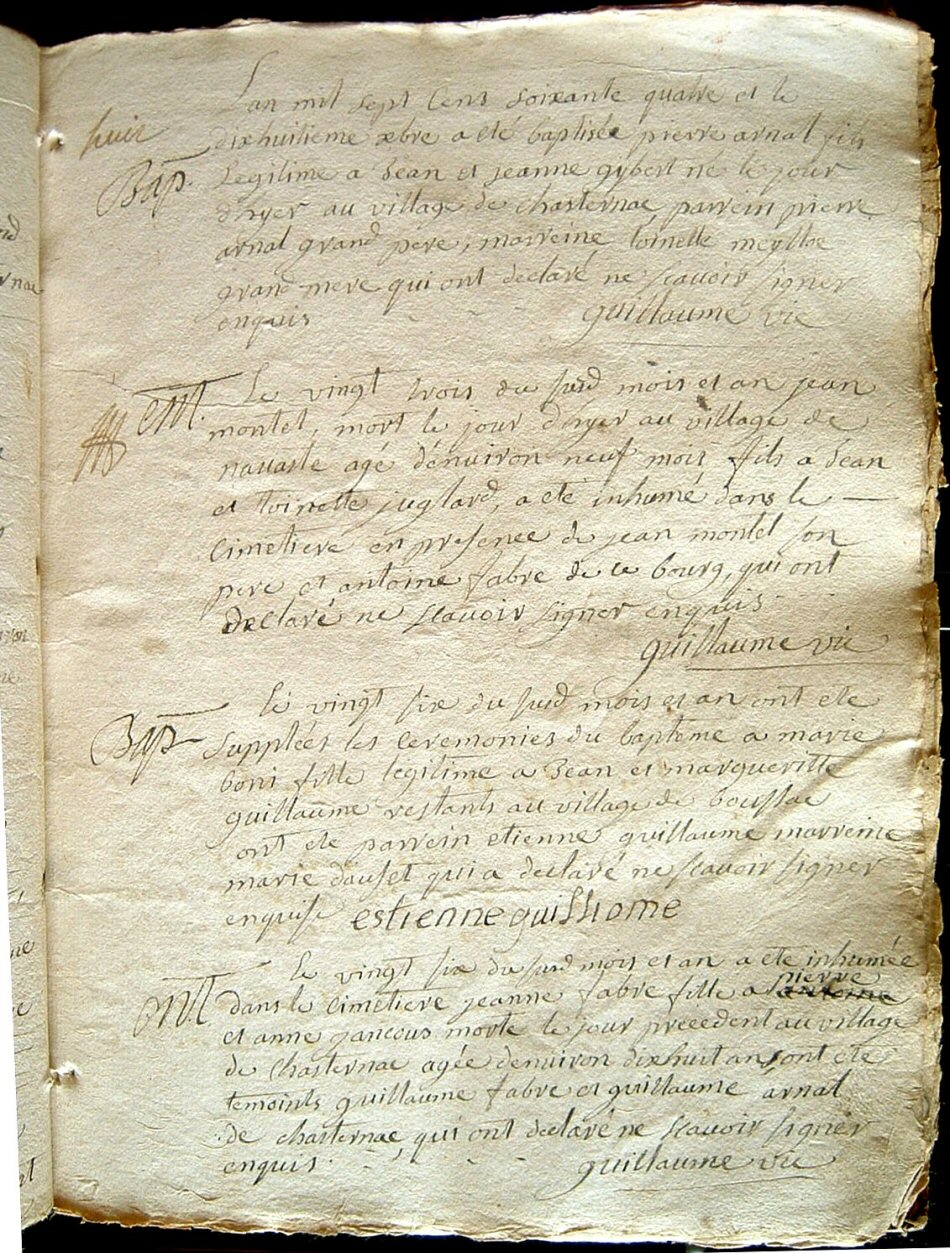 L'an mil sept cens soixante quatre et le
huit
dixhuitieme xbre a eté baptisée pierre arnal fils
Bap.
Legitime a Jean et jeanne gybert né le jour
d'hyer au village de chasternac, parrein pierre
arnal grand pere, marreine, toinette
grand mere qui ont declaré ne scavoir signer
enquis
guillaume vic
M.
Le vingt trois du susd mois et an jean
montel, mort le jour d'hyer au village de
nauaste agé d'enuiron neuf mois fils a Jean
et toinette juglard, a eté inhumé dans le
cimetiere en presence de jean montel son
pere et antoine fabre de ce bourg, qui ont
declaré ne scavoir signer enquis
guillaume vic
Bap
Le vingt six du susd mois et an ont eté
supplées les ceremonies du baptéme a marie
boni fille legitime a Jean et margueritte
guillaume restants au village de boussac
ont eté parrein etienne guillaume marreine
marie dauset qui a declaré ne scavoir signer
enquise estienne guilliome
Le vingt six du susd mois et an a eté inhumée
M.
dans le cimetiere jeanne fabre fille a pierre
et anne jancous morte le jour precedent au village
de chasternac agée denuiron dixhuit ans ont eté
temoints guillaume fabre et guillaume arnal
de chasternac, qui ont declaré ne scavoir signer
enquis.
guillaume vic